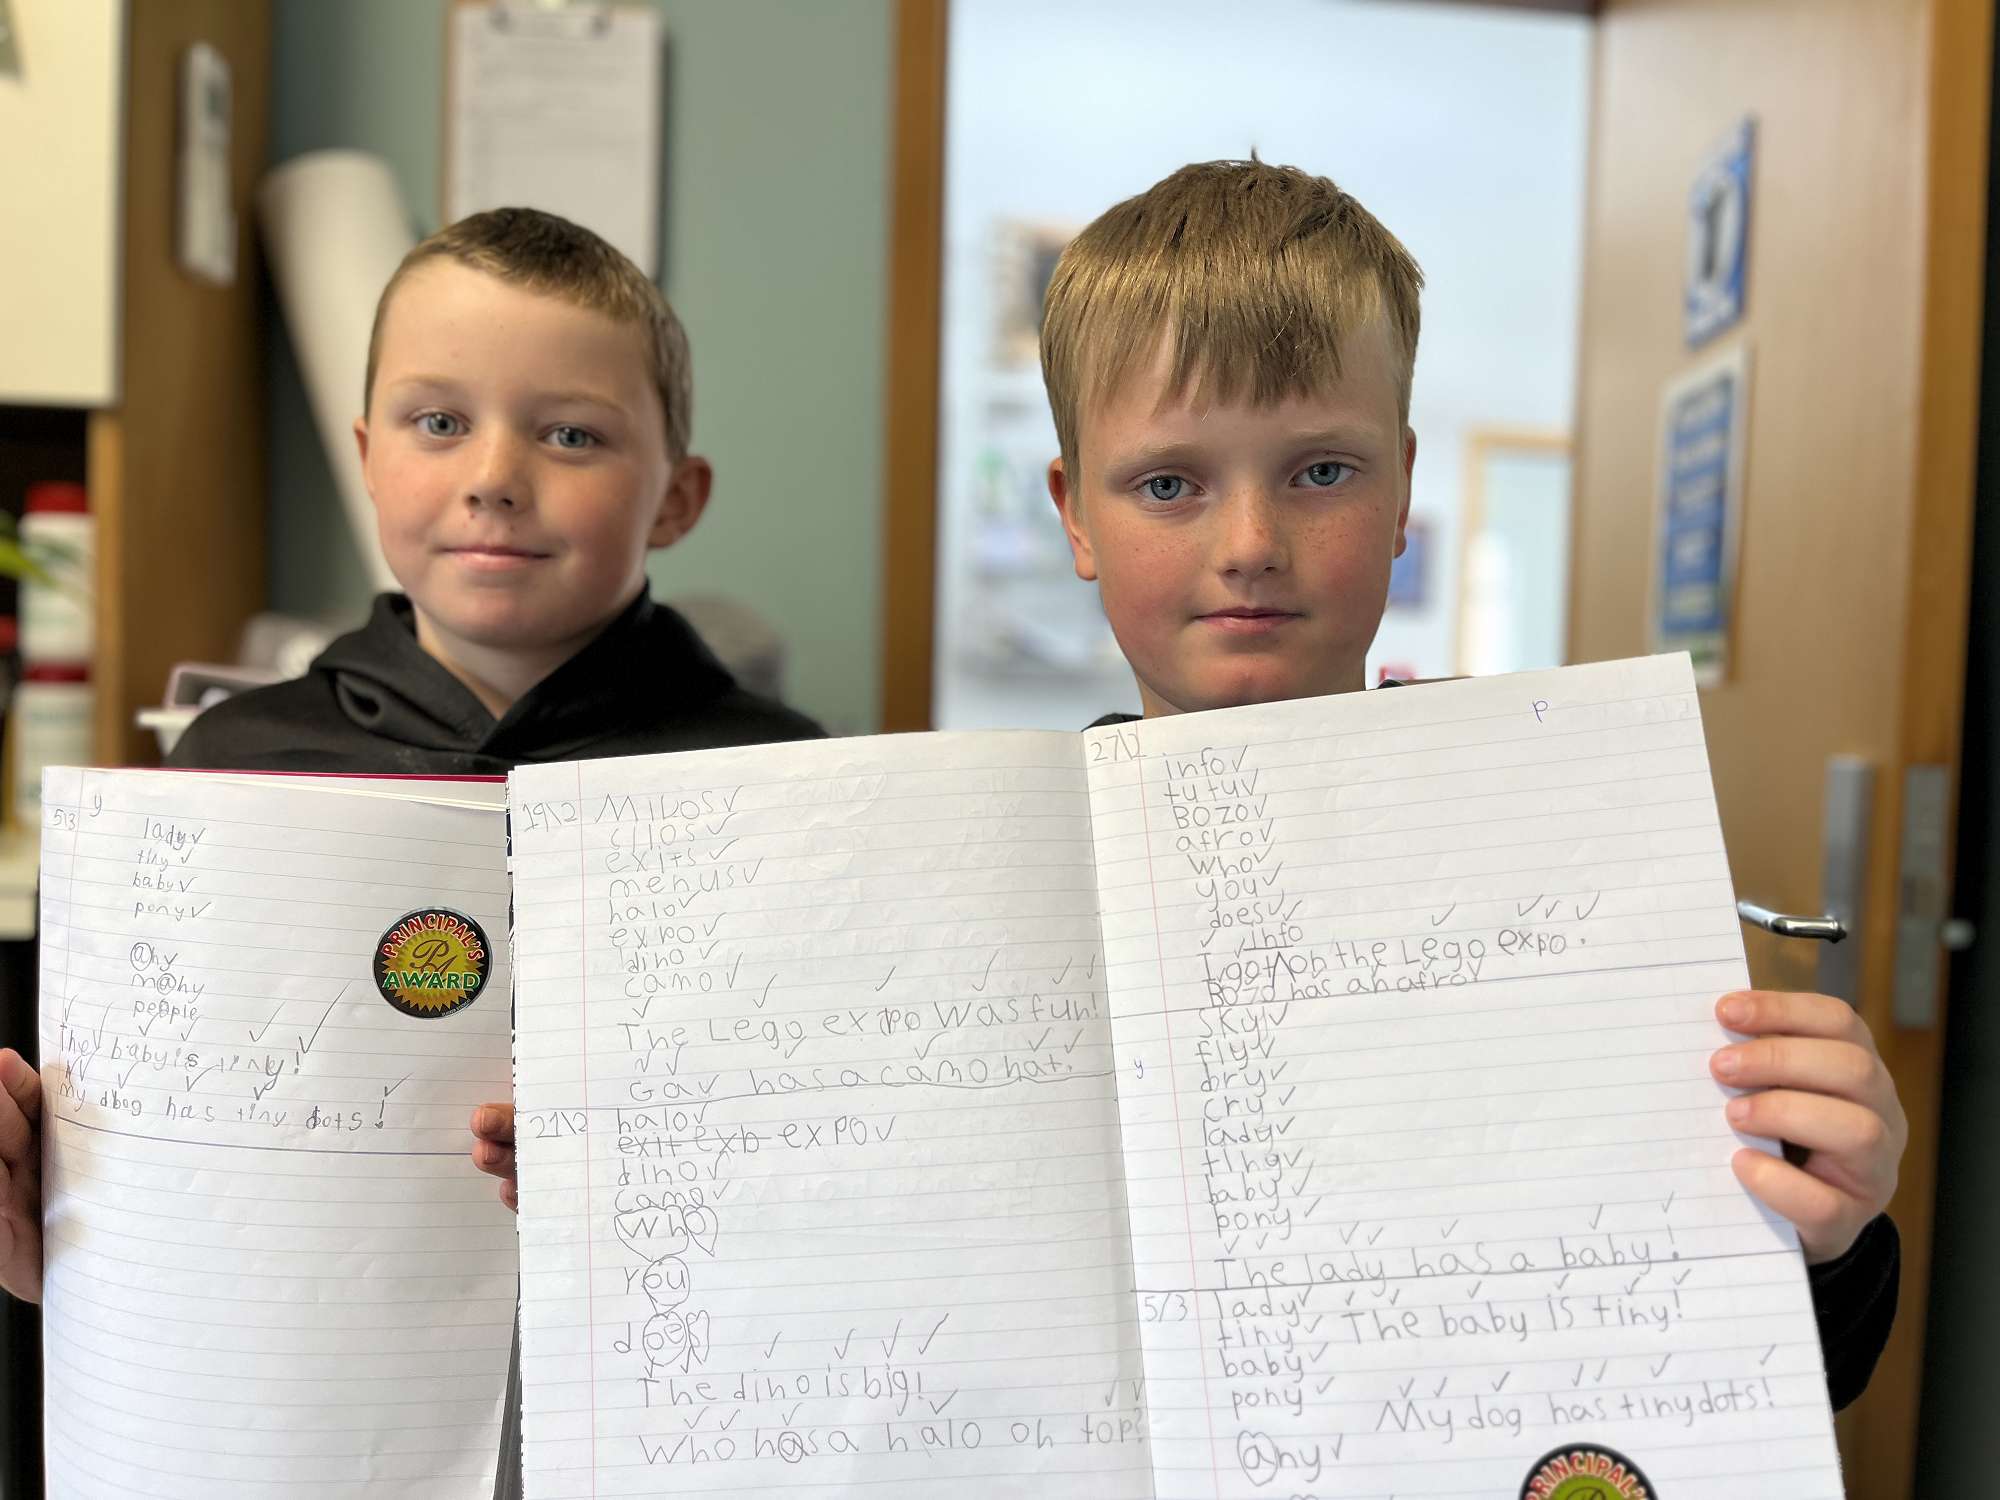 y
5\3
lady✓
tiny✓
baby✓
pony✓
any
many
people
The baby is tiny!
my dog has tiny dots!
PRINCIPAL'S
PA
AWARD
19\2
silos✓
exits✓
menus✓
halo✓
expo✓
dino✓
camo✓
The Lego expo was fun!
Gav has a camo hat.
21\2
halo✓
exit exb expo✓
dino✓
camo✓
Who
You
does
The dino is big!
Who has a halo on top?
27\2
p
info✓
tutu✓
BOZO✓
afro✓
who✓
you✓
does✓
info
I got on the Lego expo.
Bozo has an afro✓
sky✓
y
fly✓
dry✓
cry✓
lady✓
tiny✓
baby✓
pony✓
The lady has a baby!
5/3
lady✓ The baby is tiny!
tiny✓
baby✓
pony✓ My dog has tiny dots!
any✓
PRINCIPAL'S